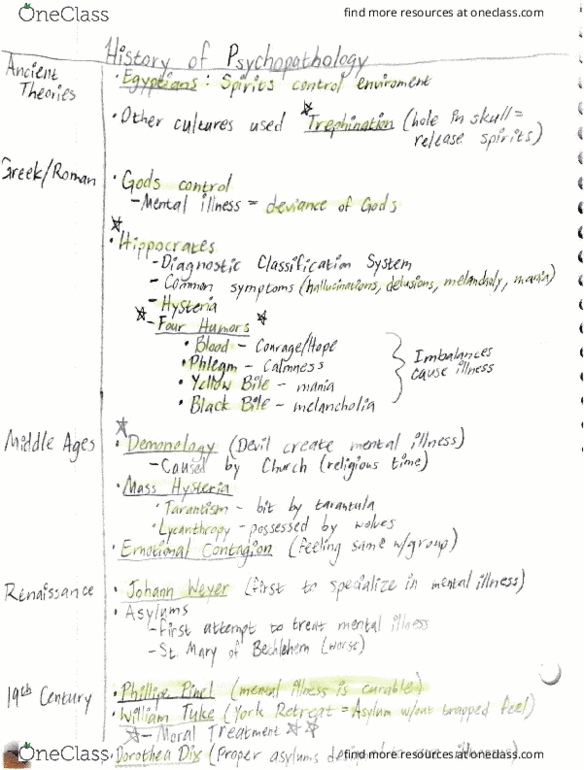 OneClass
find more resources at oneclass.com
History of Psychopathology
Ancient Theories
• Egyptians : Spirits control enviroment
• Other cultures used Trephination (hole in skull = release spirits)
Greek/Roman
• Gods control
- Mental illness = deviance of Gods
• Hippocrates
- Diagnostic Classification System
- Common symptoms (hallucinations, delusions, melancholy, mania)
- Hysteria
- Four Humors
• Blood - Courage/Hope
• Phlegm - Calmness
• Yellow Bile - mania
• Black Bile - melancholia
Imbalances cause illness
Middle Ages
• Demonology (Devil create mental illness)
- Caused by Church (religious time)
• Mass Hysteria
• Tarantism - bit by tarantula
• Lycanthropy - possessed by wolves
• Emotional Contagion (feeling same w/group)
Renaissance
• Johann Weyer (first to specialize in mental illness)
• Asylums
- First attempt to treat mental illness
- St. Mary of Bethlehem (worse)
19th Century
• Phillipe Pinel (mental illness is curable)
• William Tuke (York Retreat = Asylum w/out trapped feel)
- Moral Treatment
• Dorothea Dix (Proper asylums
OneClass
find more resources at oneclass.com